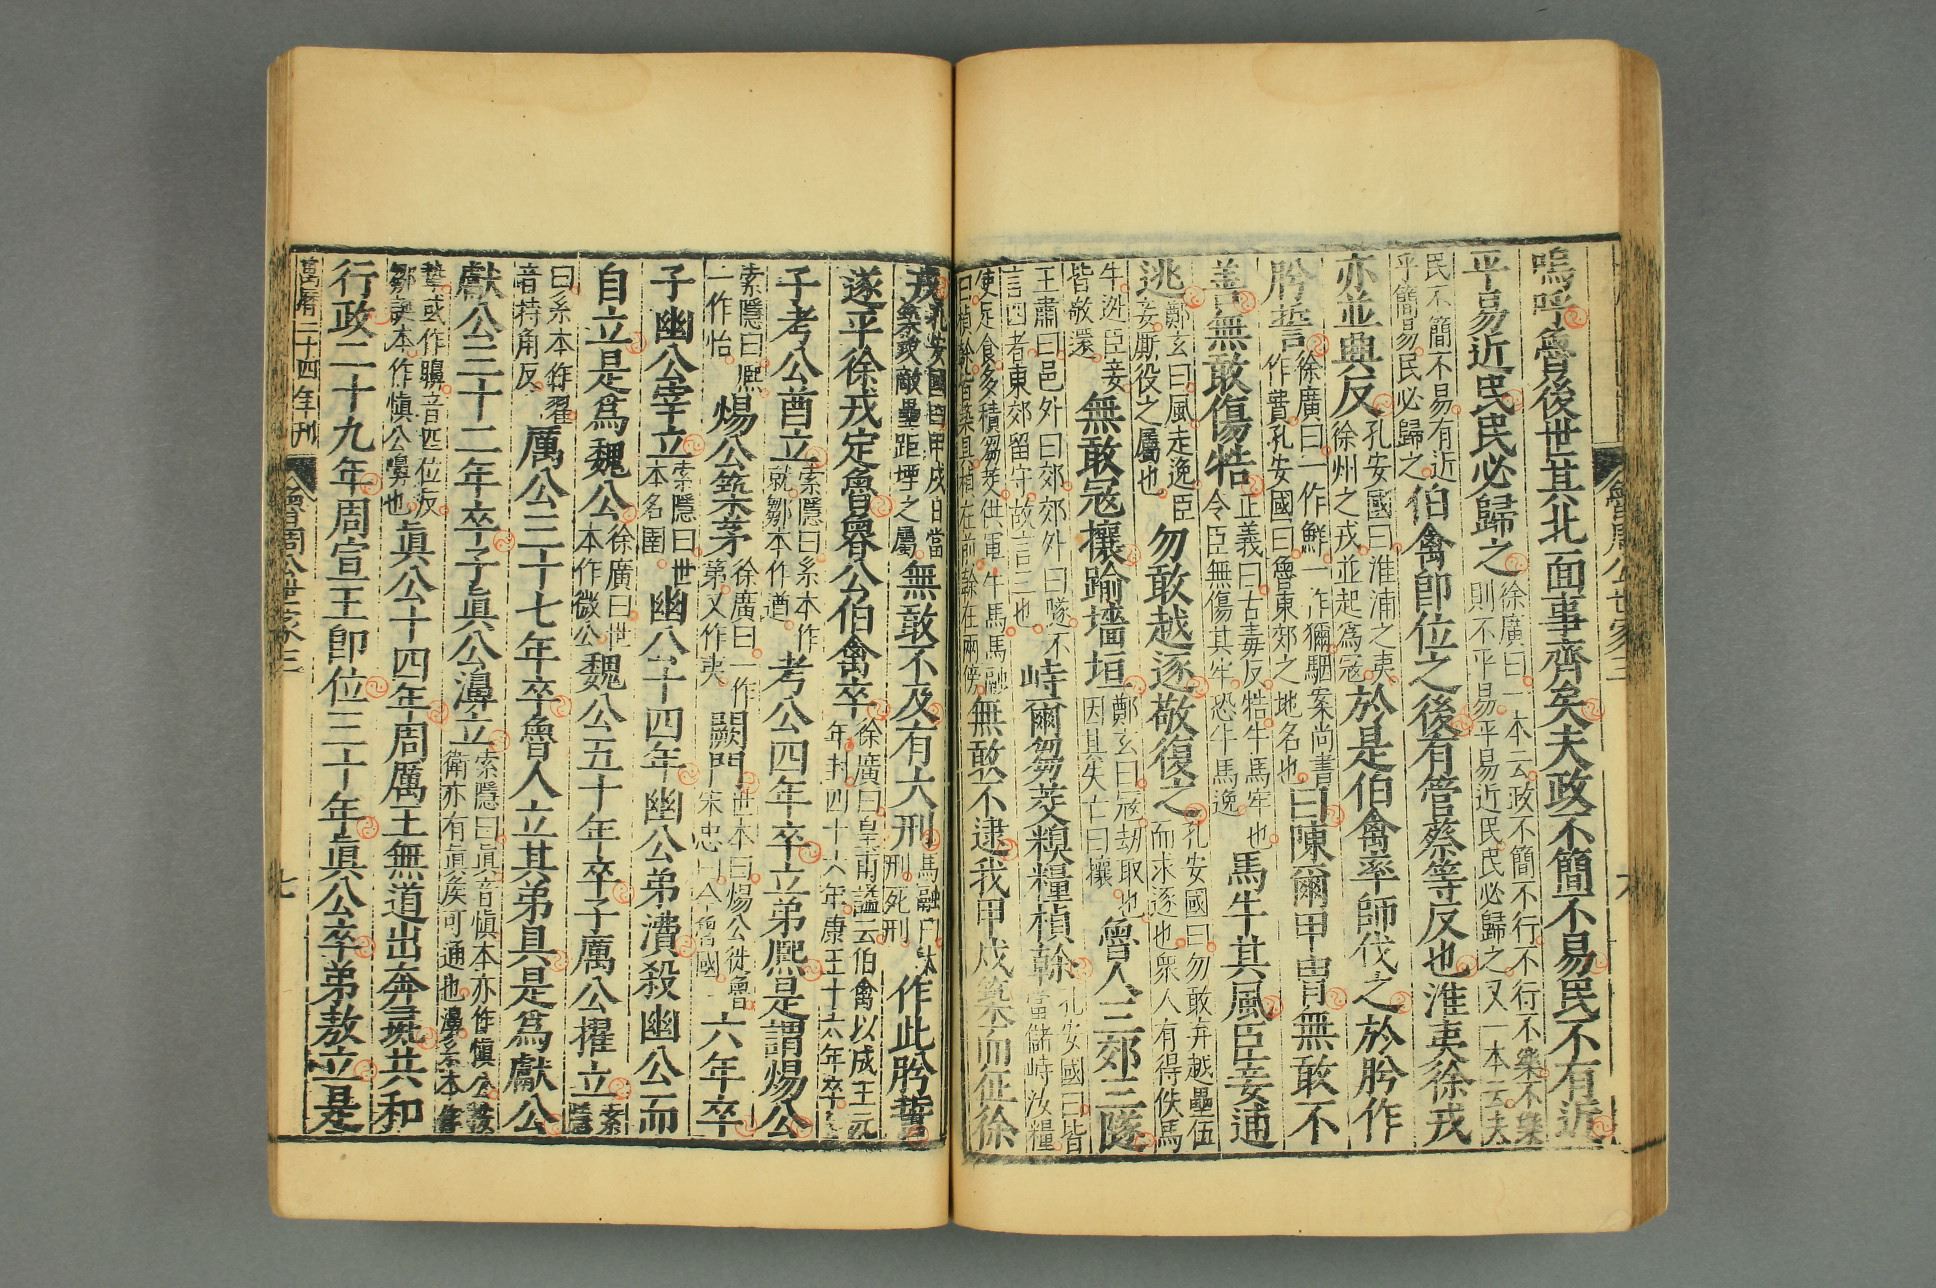 嗚呼魯後世其北面事齊矣夫政不簡不易民不有近
平易近民民必歸之徐廣曰一本云政不簡不行不行不樂不樂則不平易平易近民民必歸之又一本云夫民不簡不易有近平簡易民必歸之伯禽即位之後有管蔡等反也淮夷徐戎
亦並興反孔安國曰淮浦之夷徐州之戎並起為寇於是伯禽率師伐之於肸作
肸誓徐廣曰一作鮮一作獮駰案尚書作費孔安國曰魯東郊之地名也曰陳爾甲冑無敢不
善無敢傷牿正義曰古毒反牿牛馬牢也令臣無傷其牢恐牛馬逸馬牛其風臣妾逋
逃鄭玄曰風走逸臣妾厮役之屬也勿敢越逐敬復之孔安國曰勿敢弃越壘伍而求逐也衆人有得佚馬
牛逃臣妾皆敬還無敢寇攘踰墻垣鄭玄曰寇劫取也因其失亡曰攘魯人三郊三隧
王肅曰邑外曰郊郊外曰隧不言四者東郊留守故言三也峙爾芻茭糗糧楨榦孔安國曰皆當儲峙汝糧
使足食多積芻茭供軍牛馬馬融曰楨榦皆築具楨在前榦在兩傍無敢不逮我甲戌築而征徐
戎孔安國曰甲戌日當築攻敵壘距堙之屬無敢不及有大刑馬融曰大刑死刑作此肸誓
遂平徐戎定魯魯公伯禽卒徐廣曰皇甫謐云伯禽以成王元年封四十六年康王十六年卒
子考公酋立索隱曰系本作就鄒本作遒考公四年卒立弟熈是謂煬公
索隱曰熈一作怡煬公築茅徐廣曰一作第又作夷闕門世本曰煬公徙魯宋忠曰今魯國六年卒
子幽公宰立索隱曰世本名圉幽公十四年幽公弟㵒殺幽公而
自立是為魏公徐廣曰世本作微公魏公五十年卒子厲公擢立索隱
曰系本作翟音持角反厲公三十七年卒魯人立其弟具是為獻公
獻公三十二年卒子眞公濞立索隱曰眞音慎本亦作慎公按衛亦有眞侯可通也濞系本作
摯或作鼻音匹位反鄒誕本作慎公嚊也眞公十四年周厲王無道出奔彘共和
行政二十九年周宣王即位三十年眞公卒弟敖立是
萬曆二十四年刊
魯周公世家三
七